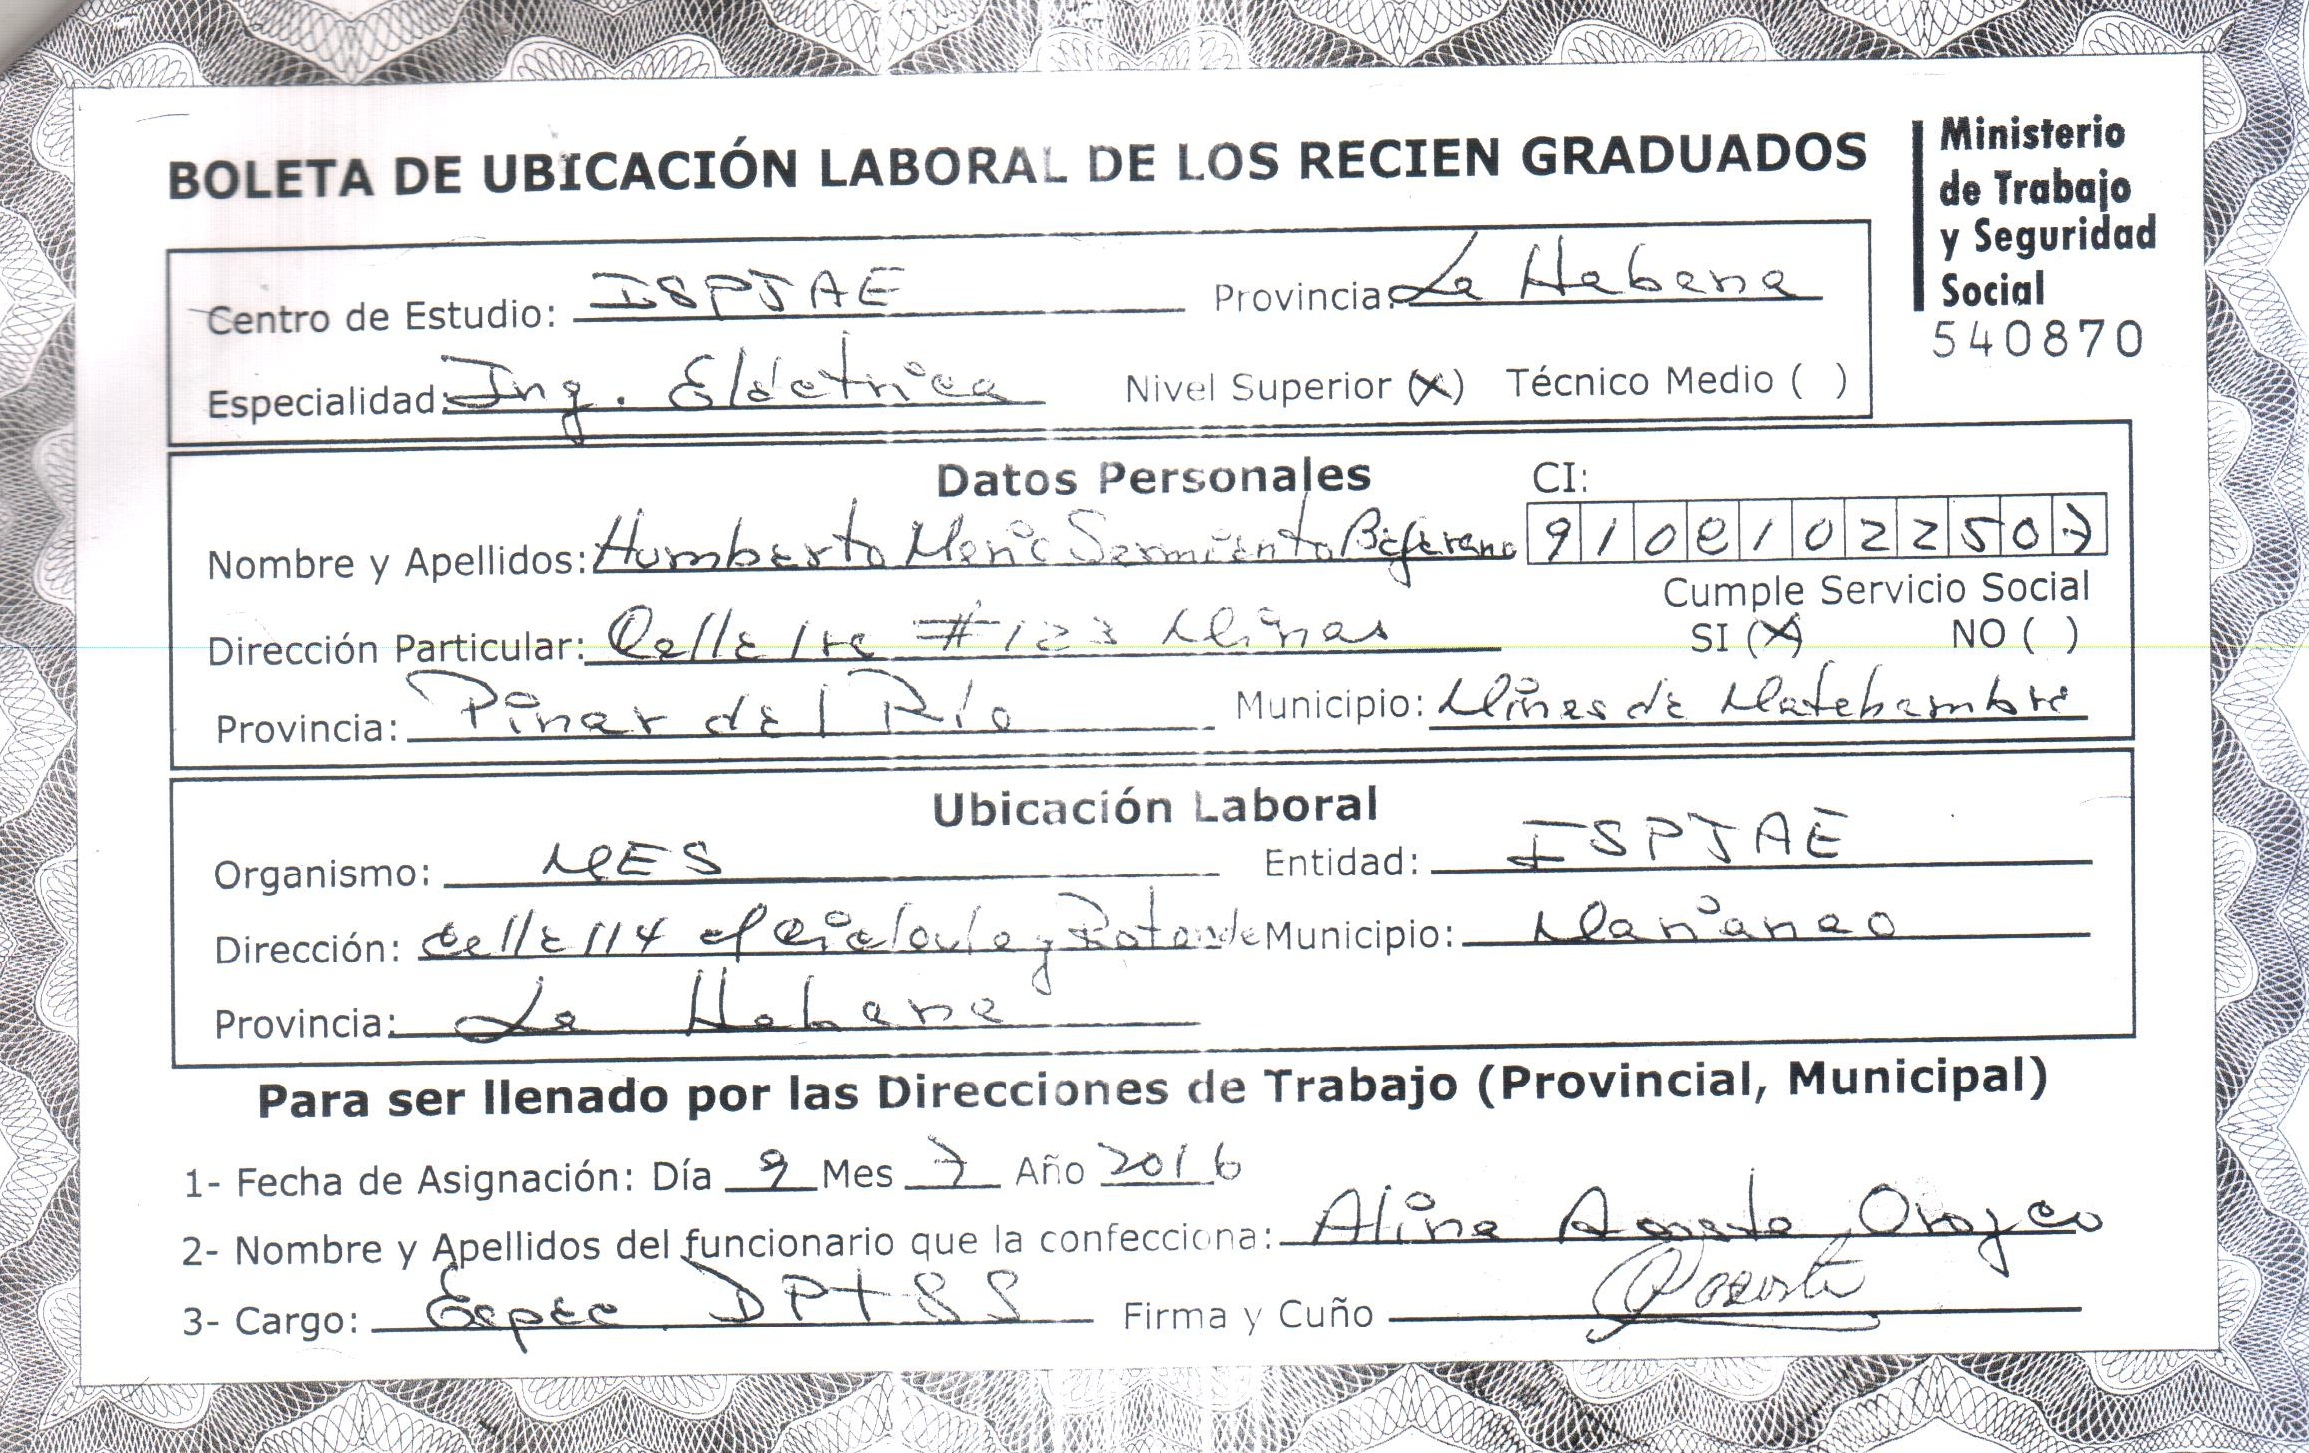 BOLETA DE UBICACIÓN LABORAL DE LOS RECIEN GRADUADOS
Ministerio
de Trabajo
y Seguridad
Social
540870
Centro de Estudio: ISPJAE Provincia: La Habana
Especialidad: Ing. Eléctrica Nivel Superior (X) Técnico Medio ( )
Datos Personales CI:
Nombre y Apellidos: Humberto Sarmiento 91081022507
Cumple Servicio Social
Dirección Particular: Calle 1ra #123 Minas SI (X) NO ( )
Provincia: Pinar del Río Municipio: Minas de Matahambre
Ubicación Laboral
Organismo: MES Entidad: ISPJAE
Dirección: Calle 114 e/ Ciclovía y Rotonda Municipio: Marianao
Provincia: La Habana
Para ser llenado por las Direcciones de Trabajo (Provincial, Municipal)
1- Fecha de Asignación: Día 9 Mes 7 Año 2016
2- Nombre y Apellidos del funcionario que la confecciona: Alina Acosta Orozco
3- Cargo: DPTSS Firma y Cuño